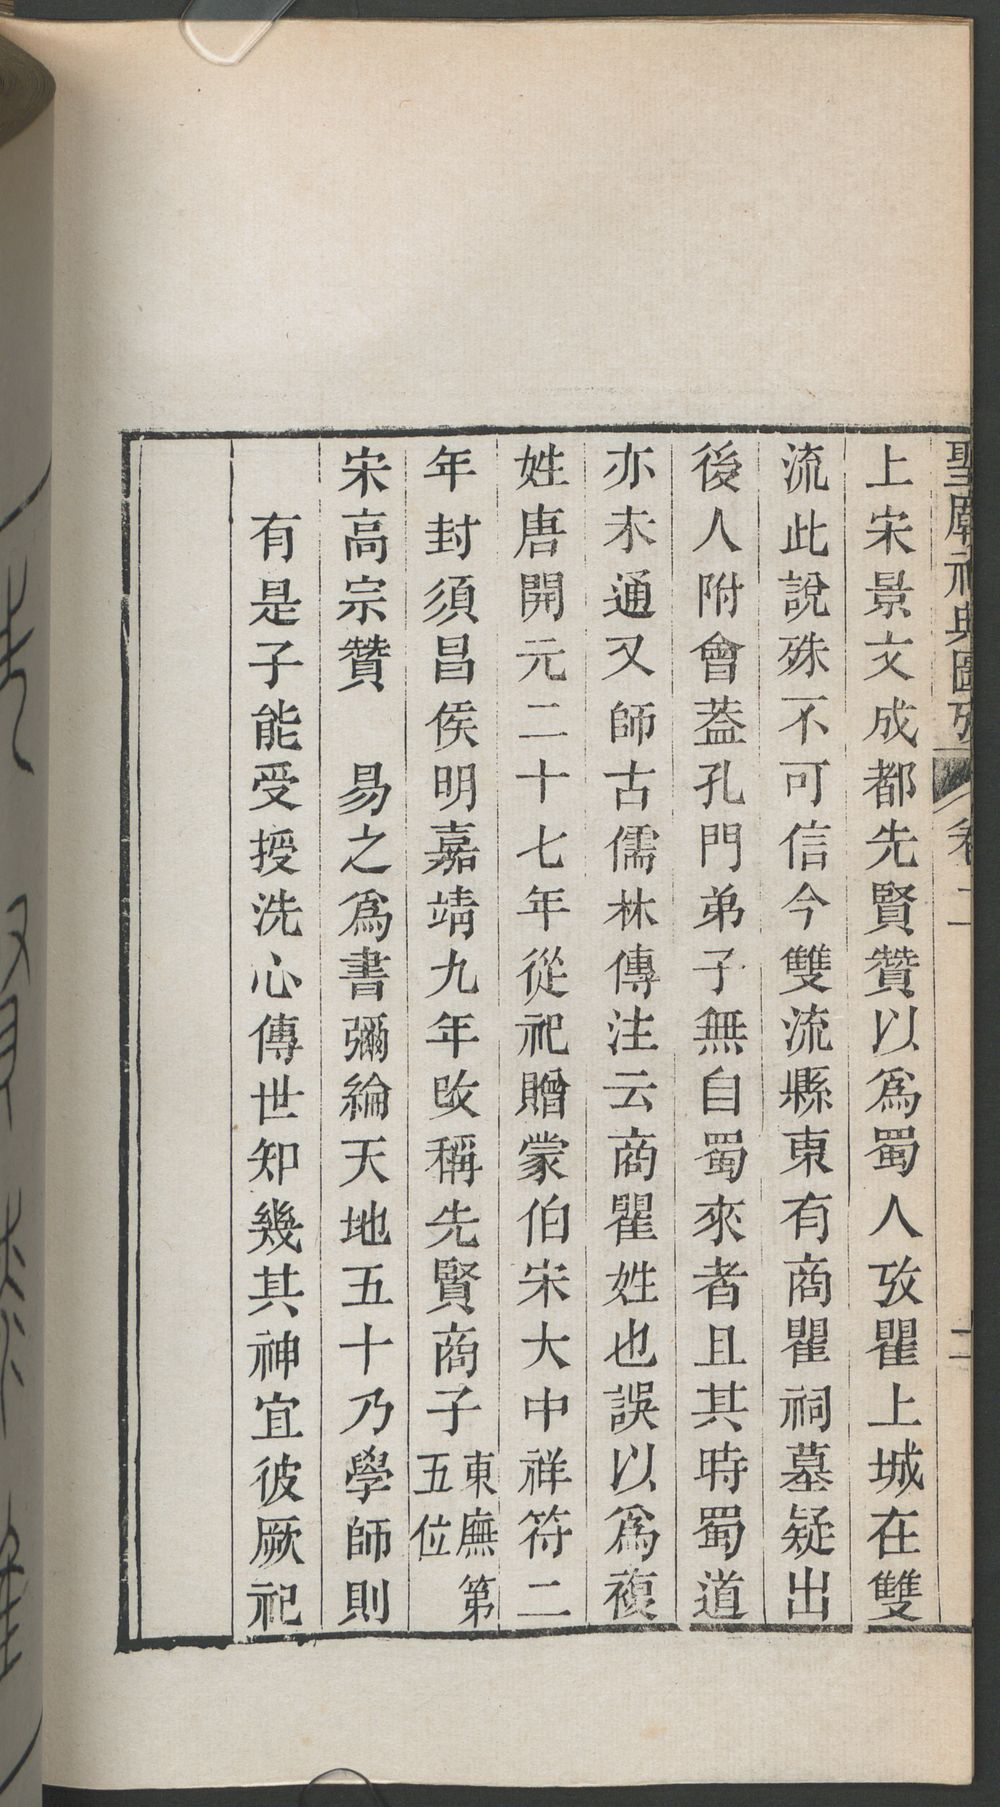 聖廟祀典圖攷 卷二 二
上宋景文成都先賢贊以爲蜀人攷瞿上城在雙
流此說殊不可信今雙流縣東有商瞿祠墓疑出
後人附會葢孔門弟子無自蜀來者且其時蜀道
亦未通又師古儒林傳注云商瞿姓也誤以爲複
姓唐開元二十七年從祀贈蒙伯宋大中祥符二
年封須昌侯明嘉靖九年改稱先賢商子東廡第五位
宋高宗贊 易之爲書彌綸天地五十乃學師則
有是子能受授洗心傳世知幾其神宜彼厥祀